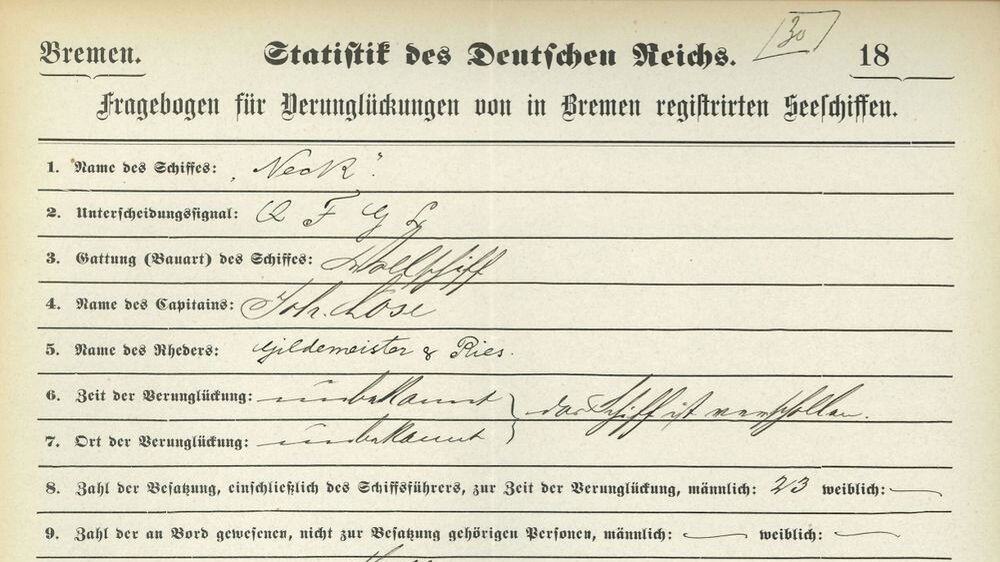 30
Bremen. Statistik des Deutschen Reichs. 18
Fragebogen für Verunglückungen von in Bremen registrirten Seeschiffen.
1. Name des Schiffes: „Neck“.
2. Unterscheidungssignal: Q F G L
3. Gattung (Bauart) des Schiffes: Vollschiff
4. Name des Capitains: Joh. Lose
5. Name des Rheders: Gildemeister & Ries.
6. Zeit der Verunglückung: unbekannt } das Schiff ist verschollen.
7. Ort der Verunglückung: unbekannt
8. Zahl der Besatzung, einschließlich des Schiffsführers, zur Zeit der Verunglückung, männlich: 23 weiblich: —
9. Zahl der an Bord gewesenen, nicht zur Besatzung gehörigen Personen, männlich: — weiblich: —